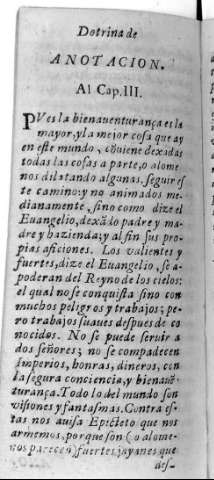 Dotrina de
ANOTACION.
Al Cap. III.
PVes la bienauenturança es la
mayor, y la mejor cosa que ay
en este mundo, cõuiene dexadas
todas las cosas a parte, o alome
nos dilatando algunas, seguir es
te camino: y no animados me-
dianamente, sino como dize el
Euangelio, dexãdo padre y ma-
dre y hazienda; y al fin sus pro-
pias aficiones. Los valientes y
fuertes, dize el Euangelio, se a-
poderan del Reyno de los cielos:
el qual no se conquista sino con
muchos peligros y trabajos; pe-
ro trabajos suaues despues de co
nocidos. No se puede seruir a
dos señores; no se compadecen
Imperios, honras, dineros, con
la segura conciencia, y bienauẽ-
turança. Todo lo del mundo son
visiones y fantasmas. Contra es-
tas nos auisa Epicteto que nos
armemos, porque son (o alome-
nos parecen) fuertes jayanes que
des-